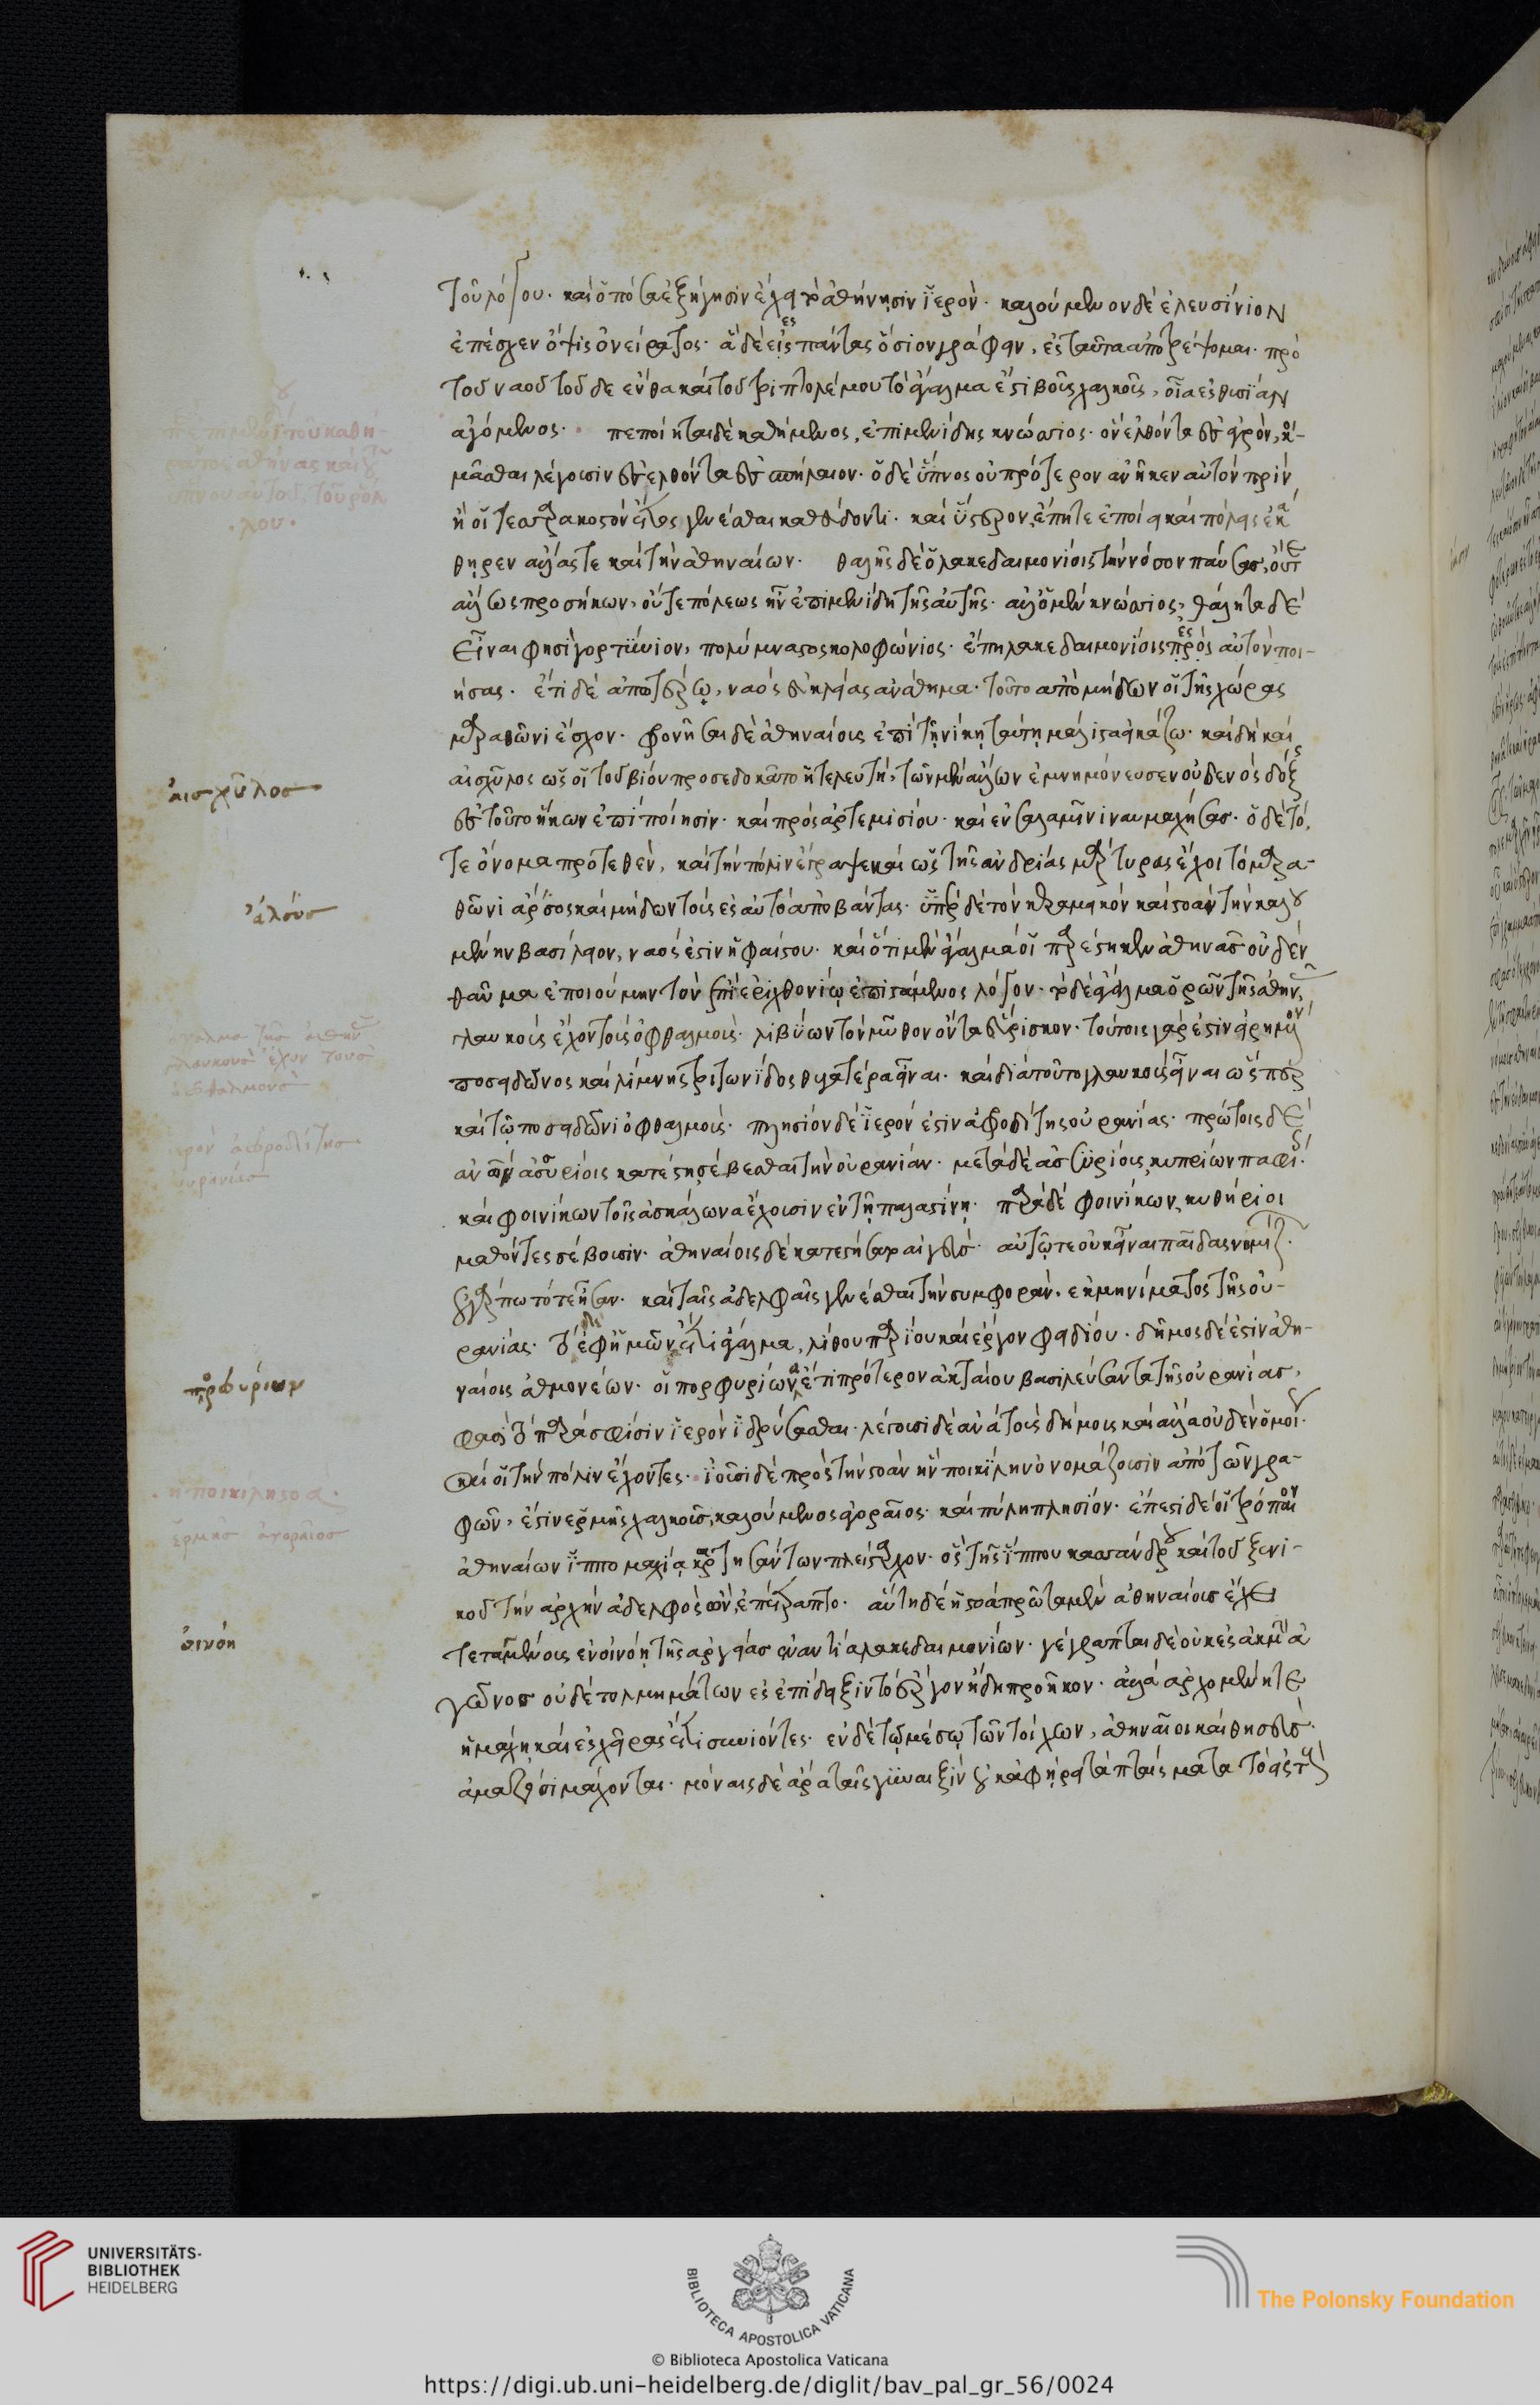 τοῦ λόγου. καὶ ὁπόσα ἐξήγησιν ἔχει τὸ ἀθήνησιν ἱερὸν. καλούμενον δὲ ἐλευσίνιον
ἐπέσχεν ὄψις ὀνείρατος. ἃ δὲ εἰς πάντας ὅσιον γράφειν, ἐς ταῦτα ἀποτρέψομαι. πρὸ
τοῦ ναοῦ τοῦδε ἔνθα καὶ τοῦ τριπτολέμου τὸ ἄγαλμα ἐστὶ βοῦς χαλκοῦς, οἷα ἐς θυσίαν
ἀγόμενος. πεποίηται δὲ καθήμενος, ἐπιμενίδης κνώσσιος. ὃν ἐλθόντα ἐς ἀγρὸν, κοι-
μᾶσθαι λέγουσιν ἐσελθόντα ἐς σπήλαιον. ὁ δὲ ὕπνος οὐ πρότερον ἀνῆκεν αὐτὸν πρὶν
ἤ οἱ τεσσαρακοστὸν ἔτος γενέσθαι καθεύδοντι. καὶ ὕστερον ἔπη τε ἐποίει καὶ πόλεις ἐκά
θηρεν ἄλλας τε καὶ τὴν ἀθηναίων. θαλῆς δὲ ὁ λακεδαιμονίοις τὴν νόσον παύσας, οὔτε
ἄλλως προσήκων, οὔτε πόλεως ἦν ἐπιμενίδῃ τῆς αὐτῆς. ἀλλ' ὁ μὲν κνώσσιος, θάλητα δὲ
εἶναι φησὶ γορτύνιον, πολύμναστος κολοφώνιος. ἔπη λακεδαιμονίοις πρὸς ἐς αὐτὸν ποι-
ήσας. ἔτι δὲ ἀπωτέρω, ναὸς εὐκλείας ἀνάθημα. τοῦτο ἀπὸ μήδων οἳ τῆς χώρας
μαραθῶνι ἔσχον. φρονῆσαι δὲ ἀθηναίους ἐπὶ τῇ νίκῃ ταύτῃ μάλιστα εἰκάζω. καὶ δὴ καὶ
αἰσχύλος ὥς οἱ τοῦ βίου προσεδοκᾶτο ἡ τελευτή, τῶν μὲν ἄλλων ἐμνημόνευσεν οὐδενὸς δόξης
ἐς τοῦτο ἥκων ἐπὶ ποιήσιν. καὶ πρὸς ἀρτεμισίου. καὶ ἐν σαλαμῖνι ναυμαχήσας. ὁ δὲ τό,
τε ὄνομα πρότεθεν, καὶ τὴν πόλιν ἔγραψε καὶ ὡς τῆς ἀνδρίας μάρτυρας ἔχοι τὸ μαρα-
θῶνι ἄλσος καὶ μήδων τοὺς ἐς αὐτὸ ἀποβάντας. ὑπὲρ δὲ τὸν κεραμεικὸν καὶ στοὰν τὴν καλου
μένην βασίλειον, ναός ἐστιν ἡφαίστου. καὶ ὅτι μὲν ἄγαλμά οἱ παρέστηκεν ἀθηνᾶς οὐδὲν
θαῦμα ἐποιούμην τὸν ἐπὶ ἐριχθονίῳ ἐπιστάμενος λόγον. τὸ δὲ ἄγαλμα ὁρῶν τῆς ἀθηνᾶς
γλαυκοὺς ἔχον τοὺς ὀφθαλμοὺς. λιβύων τὸν μῦθον ὄντα εὕρισκον. τούτοις γάρ ἐστιν εἰρημένον
ποσειδῶνος καὶ λίμνης τριτωνίδος θυγατέρα εἶναι. καὶ διὰ τοῦτο γλαυκοὺς εἶναι ὥσπερ
καὶ τῷ ποσειδῶνι ὀφθαλμοὺς. πλησίον δὲ ἱερόν ἐστιν ἀφροδίτης οὐρανίας. πρώτοις δὲ
ἀνθρώπων ἀσσυρίοις κατέστη σέβεσθαι τὴν οὐρανίαν. μετὰ δὲ ἀσσυρίους, κυπρίων παφίοις.
καὶ φοινίκων τοῖς ἀσκάλωνα ἔχουσιν ἐν τῇ παλαιστίνῃ. παρὰ δὲ φοινίκων, κυθήριοι
μαθόντες σέβουσιν. ἀθηναίοις δὲ κατεστήσατο αἰγεὺς. αὑτῷ τε οὐκ εἶναι παῖδας νομίζων.
οὐ γάρ πω τότε ἦσαν. καὶ ταῖς ἀδελφαῖς γενέσθαι τὴν συμφορὰν. ἐκ μηνίματος τῆς οὐ-
ρανίας. τὸ δὲ ἐφ' ἡμῶν ἔτι ἄγαλμα, λίθου παρίου καὶ ἔργον φειδίου. δῆμος δέ ἐστιν ἀθη-
ναίοις ἀθμονέων. οἳ πορφυρίωνα ἔτι πρότερον ἀκταίου βασιλεύσαντα τῆς οὐρανίας,
φασὶ τὸ παρὰ σφίσιν ἱερὸν ἱδρύσασθαι. λέγουσι δὲ ἀνὰ τοὺς δήμους καὶ ἄλλα οὐδὲν ὁμοίως.
καὶ οἱ τὴν πόλιν ἔχοντες. ἰοῦσι δὲ πρὸς τὴν στοὰν ἣν ποικίλην ὀνομάζουσιν ἀπὸ τῶν γρα-
φῶν, ἔστιν ἑρμῆς χαλκοῦς, καλούμενος ἀγοραῖος. καὶ πύλη πλησίον. ἔπεστι δέ οἱ τρόπαιον
ἀθηναίων ἱππομαχίᾳ κρατησάντων πλείσταρχον. ὃς τῆς ἵππου κασσάνδρου καὶ τοῦ ξενι-
κοῦ τὴν ἀρχὴν ἀδελφὸς ὢν, ἐπετέτραπτο. αὕτη δὲ ἡ στοὰ πρῶτα μὲν ἀθηναίους ἔχει
τεταγμένους ἐν οἰνόῃ τῆς ἀργείας ἐναντία λακεδαιμονίων. γέγραπται δὲ οὐκ ἐς ἀκμὴν ἀ
γῶνος οὐδὲ τολμημάτων ἐς ἐπίδειξιν τὸ ἔργον ἤδη προῆκον. ἀλλὰ ἀρχομένη τε
ἡ μάχη καὶ ἐς χεῖρας ἔτι συνιόντες. ἐν δὲ τῷ μέσῳ τῶν τοίχων, ἀθηναῖοι καὶ θησεὺς
ἀμαζόσι μάχονται. μόναις δὲ ἄρα ταῖς γυναιξὶν οὐκ ἀφῄρει τὰ πταίσματα τὸ ἐς τοὺς
αἰσχύλος
ἄλσους
πορφυρίων
οἰνόη
ἄγαλμα τῆς ἀθηνᾶς
γλαυκοὺς ἔχον τοὺς
ὀφθαλμοὺς
ἱερὸν ἀφροδίτης
οὐρανίας
ἡ ποικίλη στοά.
ἑρμῆς ἀγοραῖος
UNIVERSITÄTS-
BIBLIOTHEK
HEIDELBERG
BIBLIOTECA APOSTOLICA VATICANA
The Polonsky Foundation
© Biblioteca Apostolica Vaticana
https://digi.ub.uni-heidelberg.de/diglit/bav_pal_gr_56/0024